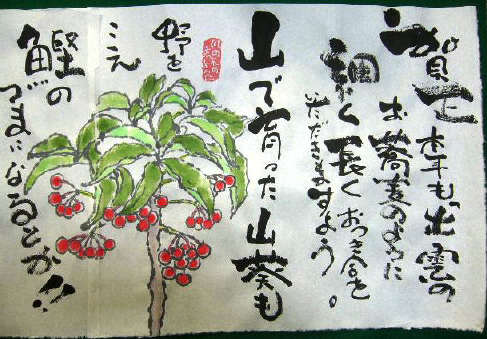 賀正 本年も、出雲の
お蕎麦のように
細く長くおつき合を
いただきますよう。
山で育った山葵も
野を
こえ
鰹の
つまになるとか!!